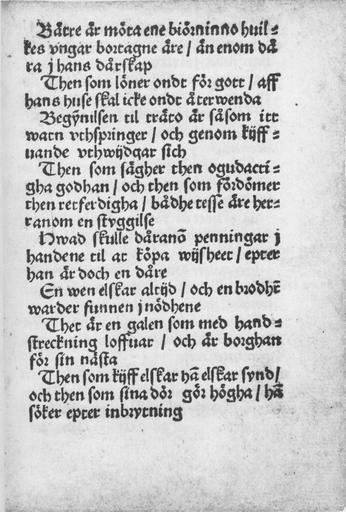 Bätre är möta ene biörninno huil⸗
kes vngar bortagne äre / än enom då
ra j hans dårskap
Then som löner ondt för gott / aff
hans huse skal icke ondt återwenda
Begÿnilsen til träto är såsom itt
watn vthspringer / och genom kijff⸗
uande vthwijdgar sich
Then som sägher then ogudacti⸗
gha godhan / och then som fördömer
then retferdigha / bådhe tesse äre her⸗
ranom en styggilse
Hwad skulle däranō penningar j
handene til at köpa wijsheet / epter
han är doch en dåre
En wen elskar altijd / och en brodhr̄
warder funnen j nödhene
Thet är en galen som med hand⸗
streckning loffuar / och är borghan
för sin nästa
Then som kijff elskar hā elskar synd /
och then som sina dör gör högha / hā
söker epter inbrytning